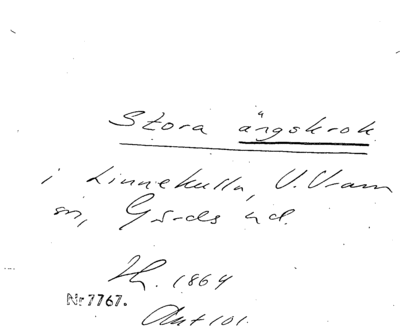 Stora ängskrok
i Linnekulla, V. Vram
sn, Gärds hd.
1864
Nr 7767.
Akt 101.